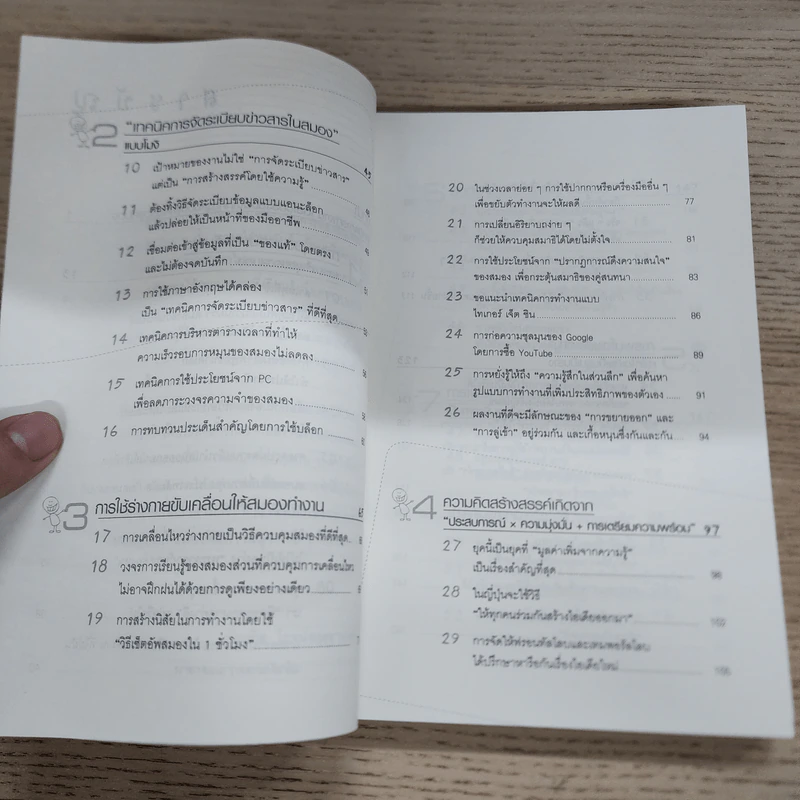 สารบัญ
2 "เทคนิคการจัดระเบียบข่าวสารในสมอง"
แบบโมงิ
10 เป้าหมายของงานไม่ใช่ "การจัดระเบียบข่าวสาร"
แต่เป็น "การสร้างสรรค์โดยใช้ความรู้"
11 ต้องทิ้งวิธีจัดระเบียบข้อมูลแบบแอนะล็อก
แล้วปล่อยให้เป็นหน้าที่ของมืออาชีพ
12 เชื่อมต่อเข้าสู่ข้อมูลที่เป็น "ของแท้" โดยตรง
และไม่ต้องจดบันทึก
13 การใช้ภาษาอังกฤษได้คล่อง
เป็น "เทคนิคการจัดระเบียบข่าวสาร" ที่ดีที่สุด
14 เทคนิคการบริหารตารางเวลาที่ทำให้
ความเร็วรอบการหมุนของสมองไม่ลดลง
15 เทคนิคการใช้ประโยชน์จาก PC
เพื่อลดภาระวงจรความจำของสมอง
16 การทบทวนประเด็นสำคัญโดยการใช้บล็อก
3 การใช้ร่างกายขับเคลื่อนให้สมองทำงาน
17 การเคลื่อนไหวร่างกายเป็นวิธีควบคุมสมองที่ดีที่สุด
18 วงจรการเรียนรู้ของสมองส่วนที่ควบคุมการเคลื่อนไหว
ไม่อาจฝึกฝนได้ด้วยการดูเพียงอย่างเดียว
19 การสร้างนิสัยในการทำงานโดยใช้
"วิธีเซ็ตอัพสมองใน 1 ชั่วโมง"
20 ในช่วงเวลาย่อย ๆ การใช้ปากกาหรือเครื่องมืออื่น ๆ
เพื่อขยับตัวทำงานจะให้ผลดี 77
21 การเปลี่ยนอิริยาบถง่าย ๆ
ก็ช่วยให้ควบคุมสมาธิได้โดยไม่ตั้งใจ 81
22 การใช้ประโยชน์จาก "ปรากฏการณ์ดึงความสนใจ"
ของสมอง เพื่อกระตุ้นสมาธิของคู่สนทนา 83
23 ขอแนะนำเทคนิคการทำงานแบบ
ไทเกอร์ เจ็ต ซิน 86
24 การก่อความชุลมุนของ Google
โดยการซื้อ YouTube 89
25 การหยั่งรู้ให้ถึง "ความรู้สึกในส่วนลึก" เพื่อค้นหา
รูปแบบการทำงานที่เพิ่มประสิทธิภาพของตัวเอง 91
26 ผลงานที่ดีจะมีลักษณะของ "การขยายออก" และ
"การลู่เข้า" อยู่ร่วมกัน และเกื้อหนุนซึ่งกันและกัน 94
4 ความคิดสร้างสรรค์เกิดจาก
"ประสบการณ์ × ความมุ่งมั่น + การเตรียมความพร้อม" 97
27 ยุคนี้เป็นยุคที่ "มูลค่าเพิ่มจากความรู้"
เป็นเรื่องสำคัญที่สุด 98
28 ในญี่ปุ่นจะใช้วิธี
"ให้ทุกคนร่วมกันสร้างไอเดียออกมา"
29 การจัดให้ฟรอนทัลโลบและเทมพอรัลโลบ
ได้ปรึกษาหารือกันเรื่องไอเดียใหม่